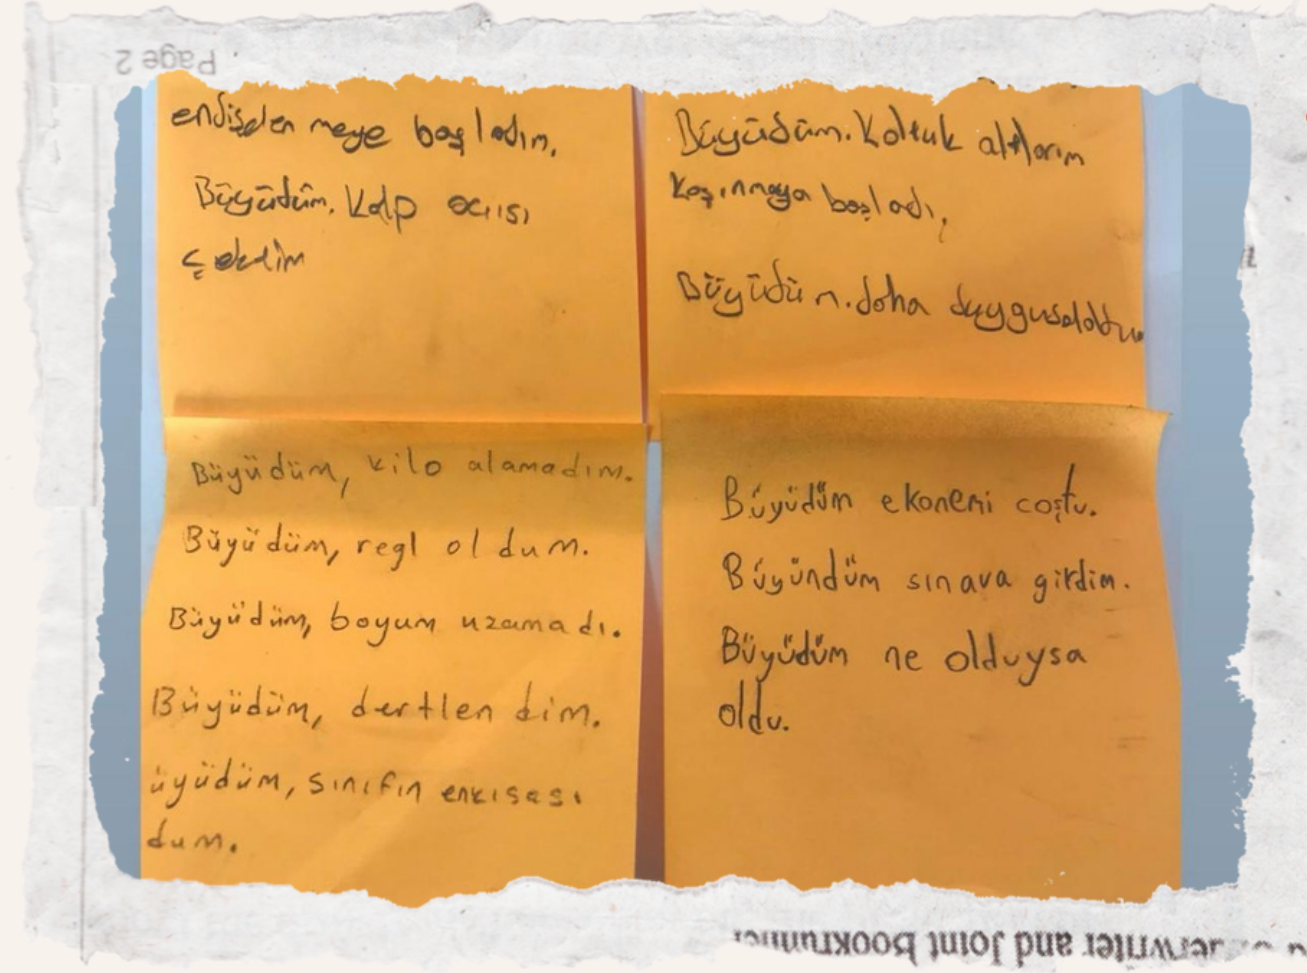 Page 2
endişelen meye başladım.
Büyüdüm. Kalp acısı
çektim
Büyüdüm. Koltuk altlarım
kaşınmaya başladı,
Büyüdüm. daha duygusaloldum
Büyüdüm, kilo alamadım.
Büyüdüm, regl oldum.
Büyüdüm, boyum uzamadı.
Büyüdüm, dertlendim.
üyüdüm, sınıfın enkısası
dum.
Büyüdüm ekonemi coştu.
Büyündüm sınava girdim.
Büyüdüm ne olduysa
oldu.
erwriter and Joint Bookrunner